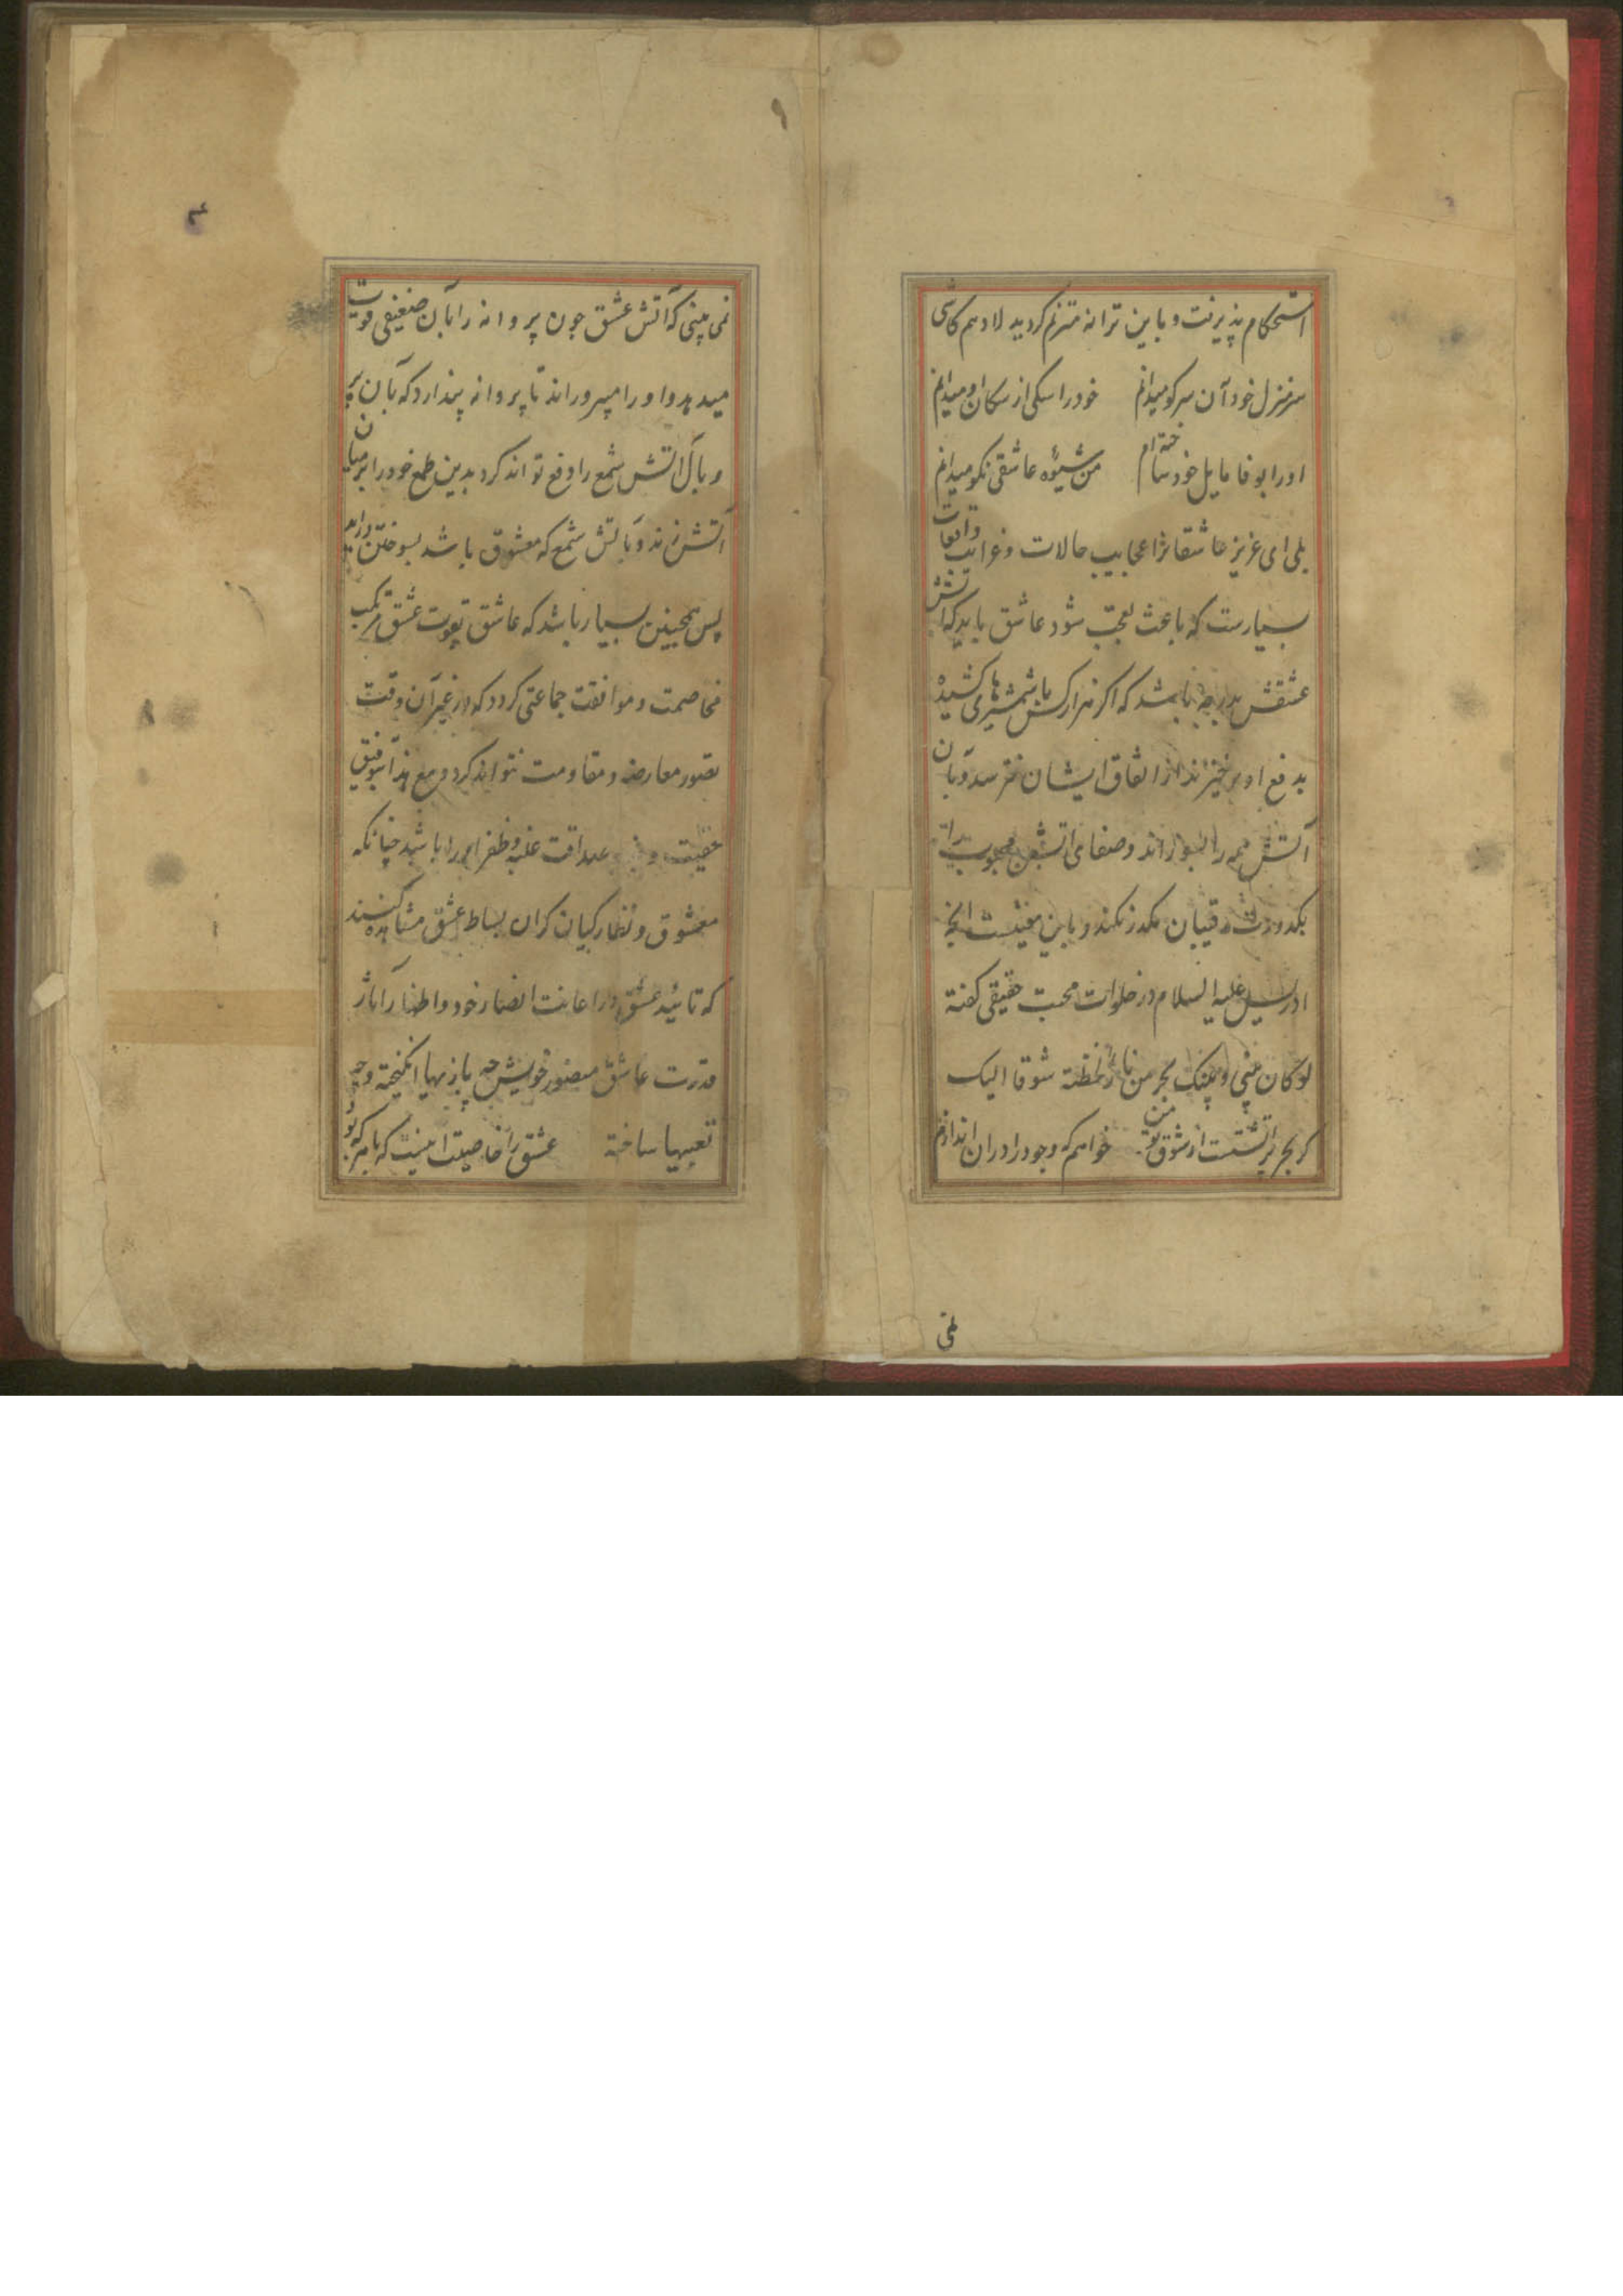 استحکام پذیرفت و باین ترانه مترنم کردید لادهم کاشی
سرمنزل خود آن سر کو میدانم خود را سکی از سکان او میدانم
او را بوفا مایل خود ساخته ام من شیوهٔ عاشقی نکو میدانم
بلی ای عزیز عاشقانرا عجایب حالات و غرایب واقعات
بسیارست که باعث تعجب شود عاشق باید که آتش
عشقش بدرجهٔ باشد که اکر هزار کس با شمشیرهای کشیده
بدفع او برخیزند از اتفاق ایشان نترسد و بآن
آتش همه را بسوزاند و صفای آتش محبوب
بکدورت رقیبان مکدر نکند و باین
ادریس علیه السلام در خلوات محبت حقیقی کفته
لو کان بینی و بینک بحر من نار لخضته شوقا الیک
کر بحر پر آتشست از شوق تو من خواهم که وجود را در ان اندازم
نمی
نمی بینی که آتش عشق چون پروانه را بآن ضعیفی قوت
میدهد و او را میپروراند تا پروانه پندارد که بآن پر
و بال آتش شمع را دفع تواند کرد بدین طمع خود را بر میان
آتش زند و بآتش شمع که معشوق باشد بسوختن دراید
پس همچنین بسیار باشد که عاشق بقوت عشق مرتکب
مخاصمت و موافقت جماعتی کردد که در غیر آن وقت
تصور معارضه و مقاومت نتواند کرد و مع هذا بتوفیق
حقیقت و صداقت غلبه و ظفر او را باشد چنانکه
معشوق و نظارکیان کران بساط عشق مشاهده کنند
که تائید عشق در اعانت انصار خود و اظهار آثار
قدرت عاشق منصور خویش چه بازیها انکیخته و چه
تعبیها ساخته عشق را خاصیت اینست که با هر که بود